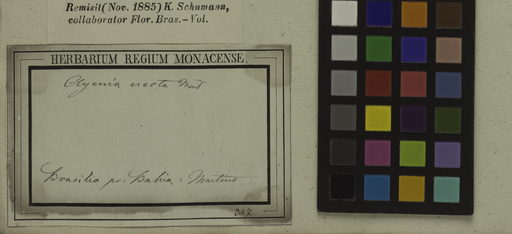 Remisit (Nov. 1885) K. Schumann,
collaborator Flor. Bras. – Vol.
HERBARIUM REGIUM MONACENSE.
erecta Mart
Brasilia pr. Bahia: Martius